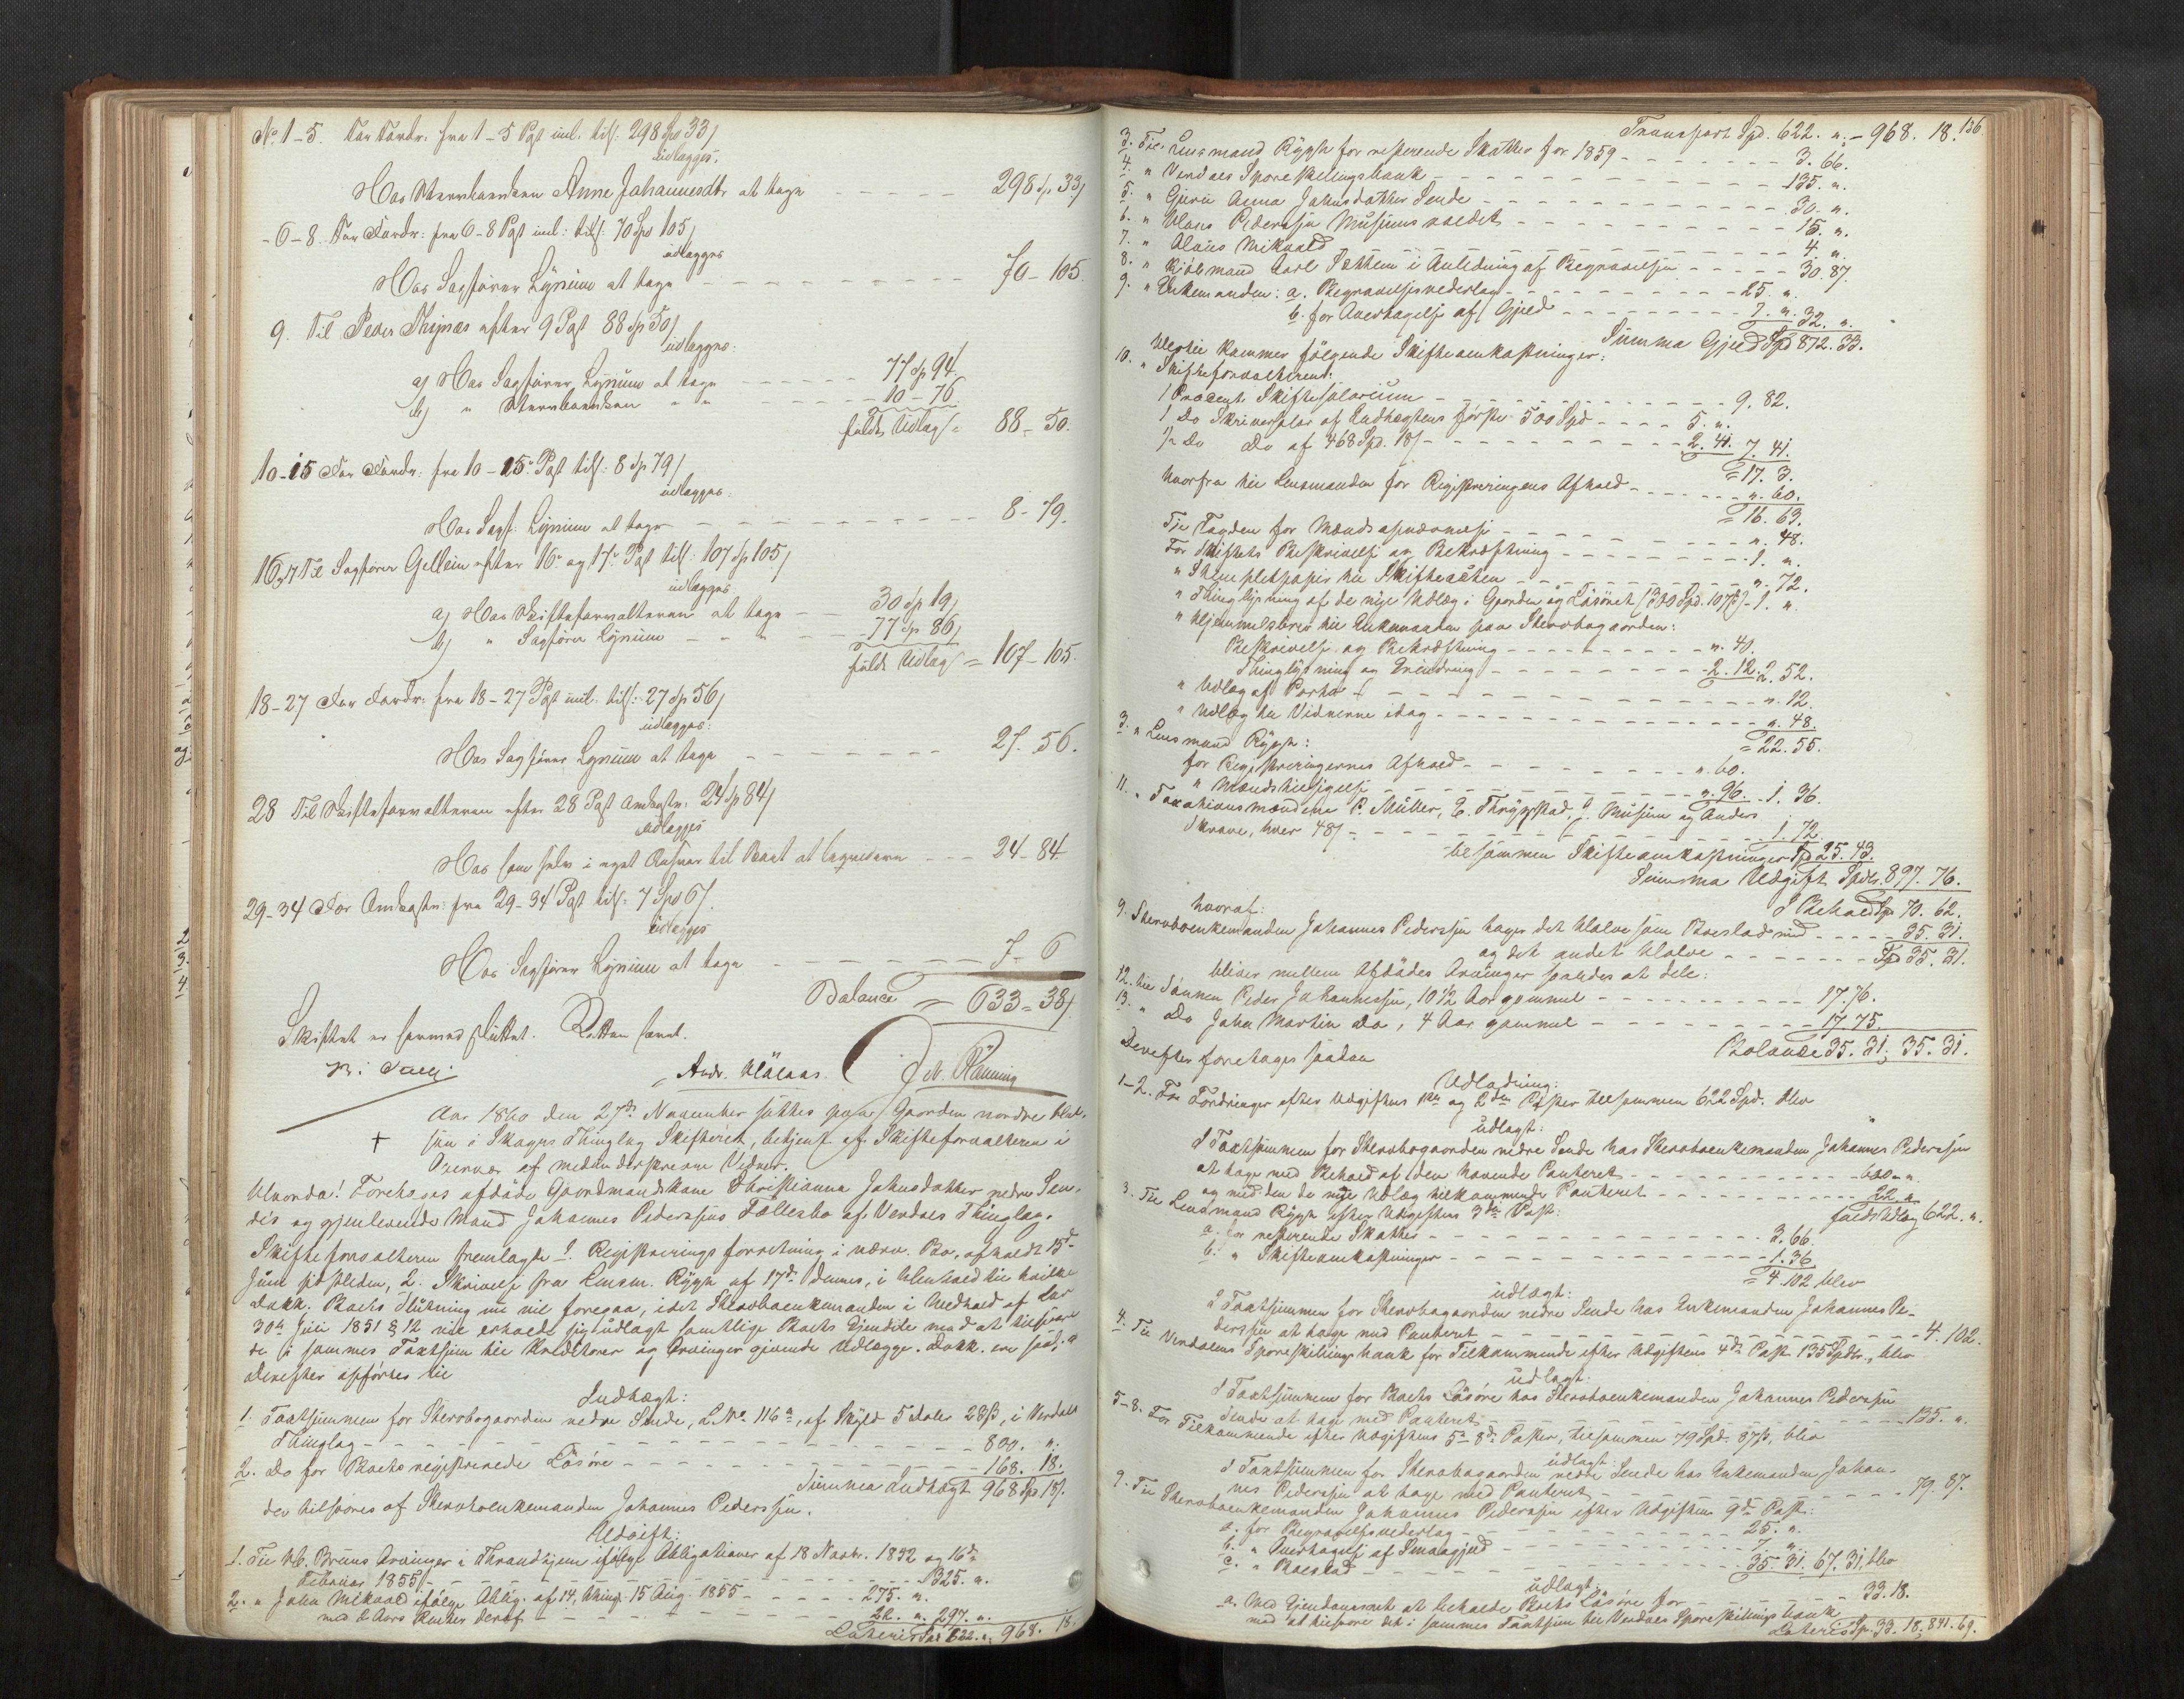 No 1-5. For Fordr. fra 1-5 Post incl. tils: 298 Spd 33/
udlægges.
Hos Stervboenken Anne Johannesdtr at tage 298 Sp 33/
- 6-8. For Fordr: fra 6-8 Post incl: tils: 70 Spd 105/
udlægges
Hos Sagfører Lynum at tage 70-105.
9. Til Peder efter 9 Post 88 Sp 50/
udlægges:
a) Hos Sagfører Lynum at tage 77 Sp 94.
b) " Stervboenken " " 10-76
fuldt Udlæg = 88-50.
10-15 For Fordr. fra 10-15 Post tils: 8 Sp 79/
udlægges:
Hos Sagf. Lynum at tage 8-79.
16 og 17 Til Sagfører Gellein efter 16 og 17 Post tils: 107 Sp 105/
udlægges
a) Hos Skifteforvalteren at tage 30 Sp 19/
b) " Sagfører Lynum " " 77 Sp 86/
fuldt Udlæg = 107-105.
18-27 For Fordr: fra 18-27 Post incl. tils: 27 Sp 56/
udlægges:
Hos Sagfører Lynum at tage 27-56.
28 Til Skifteforvalteren efter 28 Post Omkostn: 24 Sp 84/
udlægges
Hos ham selv i eget Ansvar til Boet at liqvidere 24-84.
29-34 For Omkostn: fra 29-34 Post tils: 7 Spd 6/.
udlægges
Hos Sagfører Lynum at tage 7-6
Balance = 633-38/
Skiftet er hermed sluttet. Retten hævet.
Aar 1860 den 27de November sattes paa Gaarden nordre
i Skogns Thinglag Skifteret, betjent af Skifteforvalteren i
Overvær af medunderskrevne Vidner.
Hvorda! Foretoges afdøde Gaardmandskone Christianna Johnsdatter nedre Sen-
des og gjenlevende Mand Johannes Pedersens Fællesbo af Verdals Thinglag.
Skifteforvalteren fremlagde 1. Registreringsforretning i nærv. Bo, afholdt 15de
Juni sidstleden, 2. Skrivelse fra Lensm. Rygh af 17de dennes, i Henhold til hvilke
Dokk. Boets Slutning nu vil foregaa, idet Stervboenkemanden i Medhold af Lov
30te Juli 1851 § 12 vil erholde sig udlagt samtlige Boets Eiendele mod at tilsvare
de i sammes Taxtsum til Kreditorer og Arvinger givende Udlægge. Dokk. ere saal:
Derefter opføres til
Indtægt:
1. Taxtsummen for Stervbogaarden nedre Sende, L. No 116a, af Skyld 5 daler 28 ß, i Verdals
Thinglag 800. ".
2. Do for Boets registrerede Løsøre 168. 18.
Summa Indtægt 968 Sp 18/.
der tilsvares af Stervboenkemanden Johannes Pedersen.
Udgift:
1. Til Hb. Bruns Arvinger i Throndhjem ifølge Obligationer af 18 Novbr. 1852 og 16de
Februar 1855 325. ".
2. " John Mikvold ifølge Oblig. af 14, thingl. 15 Aug. 1855 275. ".
med 2 Aars Renter deraf 22. ". 297. ".
Lateris Spd 622. ". 968. 18.
136.
Transport Spd. 622. ". - 968. 18.
3. Til Lensmand Rygh for resterende Skatter for 1859 3. 66.
4. " Verdals Spareskillingsbank 135. ".
5. " Gjeru Anna Johnsdatter Sende 30. ".
6. " Hans Pedersen Musumsvaldet 15. ".
7. " Olaus Mikvold 4. ".
8. " Kjøbmand Carl i Anledning af Begravelsen 30. 87.
9. " Enkemanden: a. Begravelsesvederlag 25. ".
b. for Overtagelse af Gjeld 7. ". 32. ".
Summa Gjeld Spd 872. 33.
Hertil kommer følgende Skifteomkostninger:
10. " Skifteforvalteren:
1 Procent Skiftesalarium 9. 82.
1 Do Skriversalar af Indtægtens første 500 Spd 5. ".
1/2 Do Do af 468 Spd. 18/ 2. 41. 7. 41.
= 17. 3.
Hvorfra til Lensmanden for Registreringens Afhold ". 60.
= 16. 63.
Til Fogden for Mændsopnævnelse ". 48.
For Skiftets Beskrivelse og Bekræftning 1. ".
" Stempletpapir til Skifteakten ". 72.
" Thinglysning af de nye Udlæg i Gaarden og Løsøret (300 Spd. 107 ß) 1. ".
" Hjemmelsbrev til Enkemanden paa Stervbogaarden:
Beskrivelse og Bekræftning ". 40.
Thinglysning og Erindring 2. 12. 2. 52.
" Udlæg af Porto ". 12.
" Udlæg til Vidnerne idag ". 48.
= 22. 55.
3. " Lensmand Rygh:
for Registreringernes Afhold ". 60.
" Mændstilsigelse ". 96. 1. 36.
11. " Taxationsmændene P. Müller, E. Thrygstad, J. Musum og Anders
Skrove, hver 48/ 1. 72.
tilsammen Skifteomkostninger Spd 25. 43.
Summa Udgift Spdlr. 897. 76.
I Behold Sp 70. 62.
hvoraf:
9. Stervboenkemanden Johannes Pedersen tager det Halve som Boeslod med 35. 31.
og det andet Halve Sp 35. 31.
bliver mellem Afdødes Arvinger saaledes at dele:
12. til Sønnen Peder Johannessen, 10 1/2 Aar gammel 17. 76.
13. " Do John Martin Do, 4 Aar gammel 17. 75.
Balance 35. 31, 35. 31.
Derefter foretoges saadan
Udlodning:
1-2. For Fordringer efter Udgiftens 1ste og 2den Poster tilsammen 622 Spd. blev
udlagt:
I Taxtsummen for Stervbogaarden nedre Sende hos Stervboenkemanden Johannes Pedersen
at tage med Behold af den havende Panteret 600 - ".
og med den de nye Udlæg tilkommende Panteret 22. ".
fuldt Udlæg 622. ".
3. Til Lensmand Rygh efter Udgiftens 3die Post:
a. for resterende Skatter 3. 66.
b. " Skifteomkostninger 1. 36
= 4. 102 blev
udlagt:
I Taxtsummen for Stervbogaarden nedre Sende hos Enkemanden Johannes Pe-
dersen at tage med Panteret 4. 102.
4. Til Verdalens Spareskillingsbank for Tilkommende efter Udgiftens 4de Post 135 Spdlr., blev
udlagt:
I Taxtsummen for Boets Løsøre hos Stervboenkemanden Johannes Pedersen
Sende at tage med Panteret 135. ".
5-8. For Tilkommende efter Udgiftens 5te-8de Poster, tilsammen 79 Spd. 87 ß, blev
udlagt:
I Taxtsummen for Stervbogaarden nedre Sende hos Enkemanden Johan-
nes Pedersen at tage med Panteret 79. 87.
9. Til Stervboenkemanden Johannes Pedersen efter Udgiftens 9de Post:
a. for Begravelsesvederlag 25. ".
b. " Overtagelse af Smaagjeld 7. ".
c. " Boeslod 35. 31. 67. 31, blev
udlagt:
a. Med Eiendomsret at beholde Boets Løsøre for 33. 18.
med at tilsvare det i sammes Taxtsum til Verdals Spareskillingsbank
Lateris Sp. 33. 18, 841. 69.